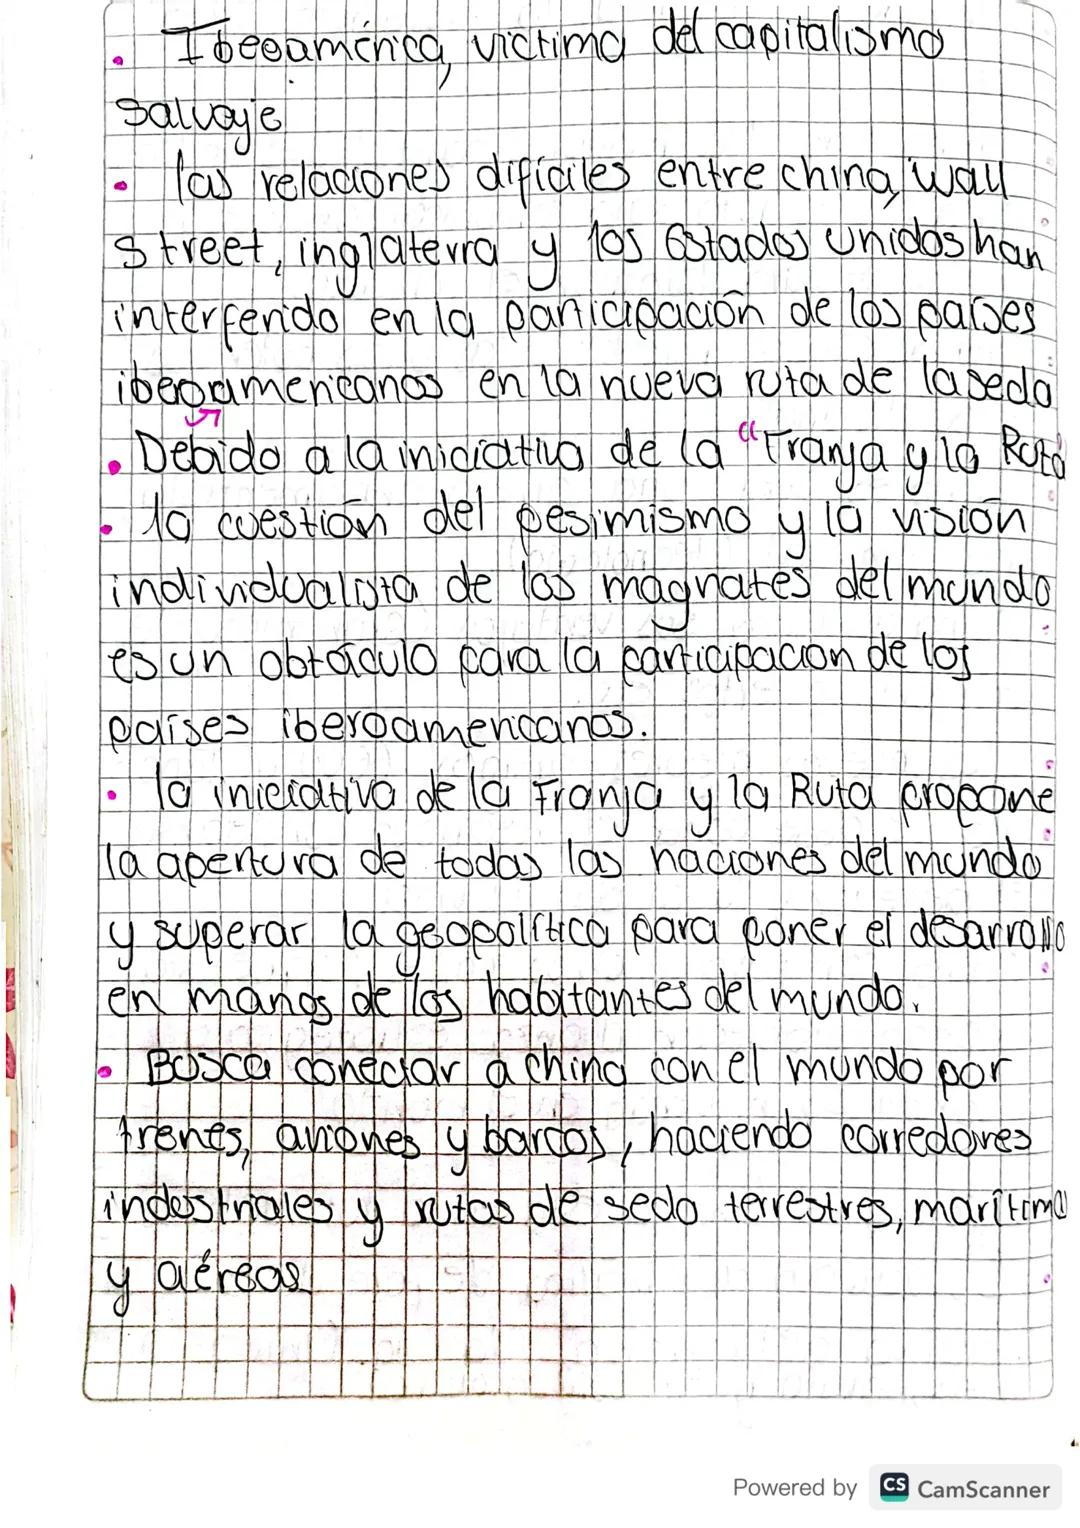 • Iberoamérica, victima del capitalismo
salvaje
• las relaciones difíciles entre china, wall
street, inglaterra y los Estados Unidos han
interferido en la participación de los países
iberoamericanos en la nueva ruta de la seda
• Debido a la iniciativa de la "Franja y la Ruta
• la cuestión del pesimismo y la visión
individualista de los magnates del mundo
es un obtáculo para la participacion de los
países iberoamericanos.
• la iniciativa de la Franja y la Ruta propone
la apertura de todas las naciones del mundo
y superar la geopolítica para poner el desarrollo
en manos de los habitantes del mundo.
• Busca conectar a china con el mundo por
trenes, aviones y barcos, haciendo corredores
indestriales y rutas de seda terrestres, marítima
y aéreas
Powered by CS CamScanner